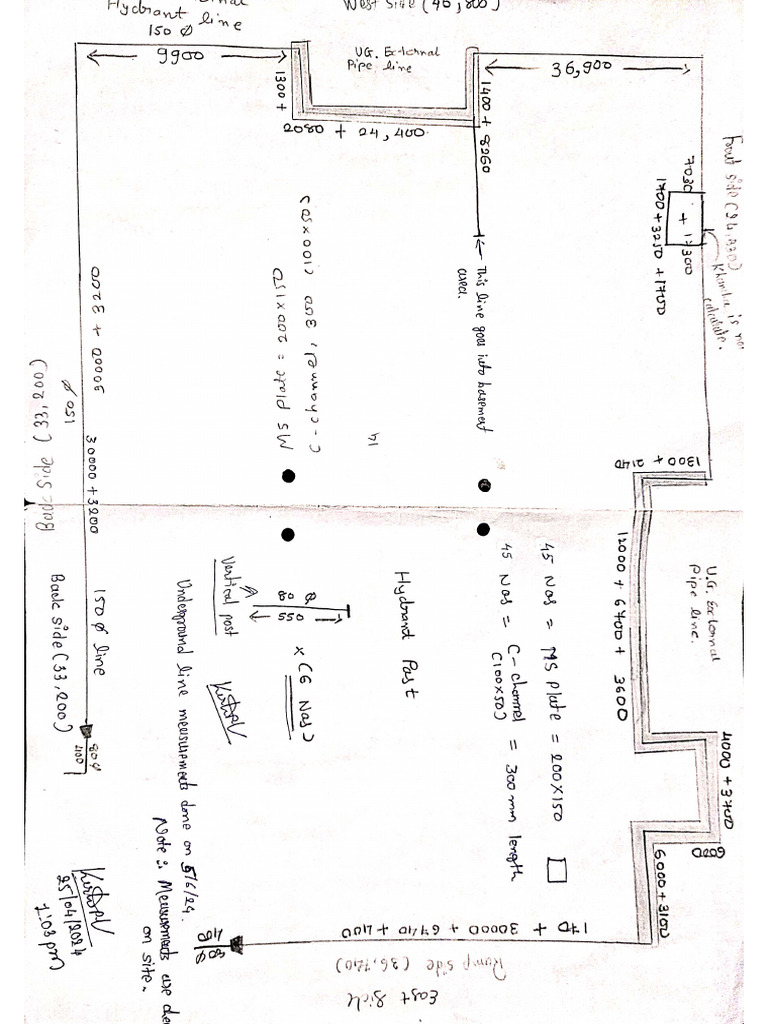 Hydrant line
150 Ø
West Side (40,800)
9900
U.G. External
Pipe line
36,900
1300 +
2080 + 24,400
1400 + 8260
← This line goes into basement
area.
7030 + 17300
1700 + 3250 + 1700
Front side (
is not
calculate.
1300 + 2140
C-channel, 300 (100x50)
MS Plate = 200x150
14
30000 + 3200
150 Ø
Back side (33,200)
30000 + 3200
150 Ø line
Back side (33,200)
80Ø
400
45 Nos = MS plate = 200X150
45 Nos = C-channel = 300mm length
(100X50)
Hydrant Post
80 Ø
550
x (6 Nos)
Vertical post
Underground line measurements done on 5/6/24.
Note :- Measurements are
on site.
25/04/2024
1:03 pm
12000 + 6700 + 3600
U.G. External
Pipe line.
4000 + 3700
6000
6000 + 3100
170 + 30000 + 6440 + 400
Ramp side (36,740)
East Side
80Ø